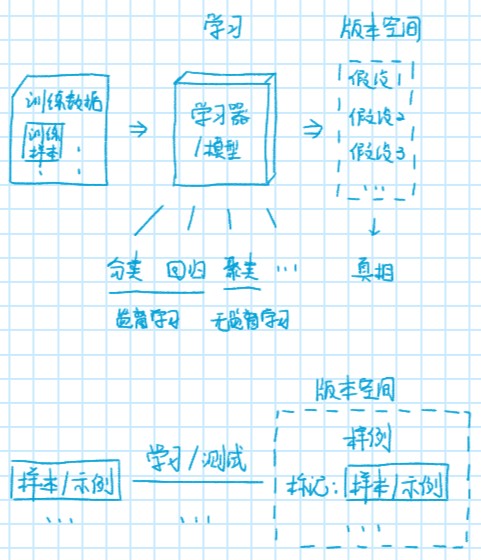 学习
版本空间
训练数据
训练
样本
学习器
/模型
假设1
假设2
假设3
...
分类 回归 聚类 ...
真相
监督学习 无监督学习
版本空间
样例
学习/测试
样本/示例
标记: 样本/示例
... ... ...